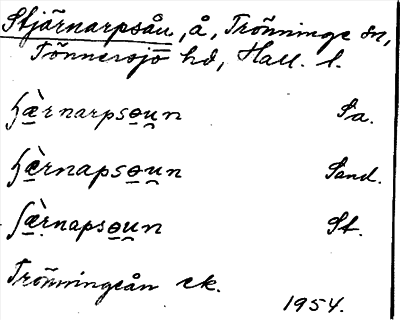 Stjärnarpsån, å, Trönninge sn,
Tönnersjö hd, Hall. l.
ɧæ̀rnarpsɵu̯n Sa.
ɧæ̀rnapsɵu̯n Sand.
ʃæ̀rnapsɵu̯n St.
Trönningeån ek.
1954.